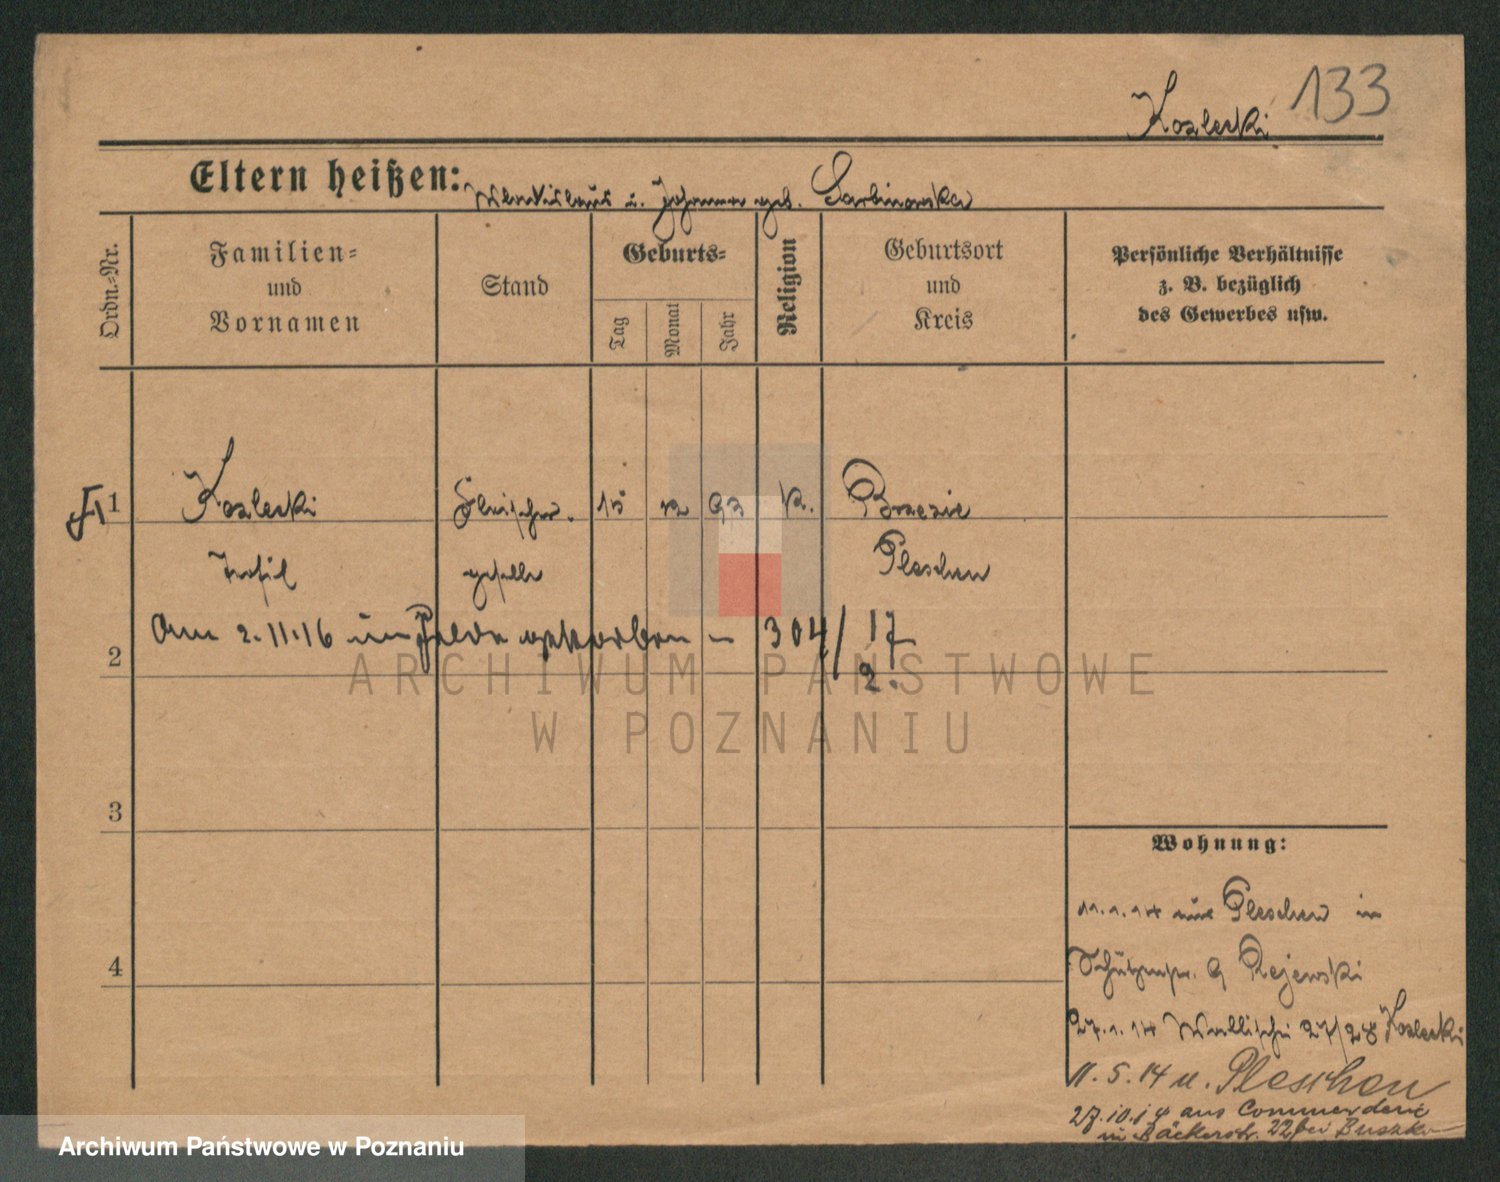 133
Kozlecki
Eltern heißen: Wladislaus u. Johanna geb. Sarbinowska
Ordn.=Nr.
Familien=
und
Vornamen
Stand
Geburts=
Tag
Monat
Jahr
Religion
Geburtsort
und
Kreis
Persönliche Verhältnisse
z. B. bezüglich
des Gewerbes usw.
1 Kozlecki Fleischer. 15 12 93 k. Brzezie
Teofil geselle Pleschen
Am 2.11.16 im Felde gestorben - 304/17
2.
2
3
4
Wohnung:
11.1.14 aus Pleschen in
Schützenstr. 9 Rejewski
27.1.14 Wallischei 27/28 Kozlecki
11.5.14 u. Pleschen
27.10.14 aus Commenderie
in Bäckerstr. 22 bei Buszka
ARCHIWUM PAŃSTWOWE
W POZNANIU
Archiwum Państwowe w Poznaniu